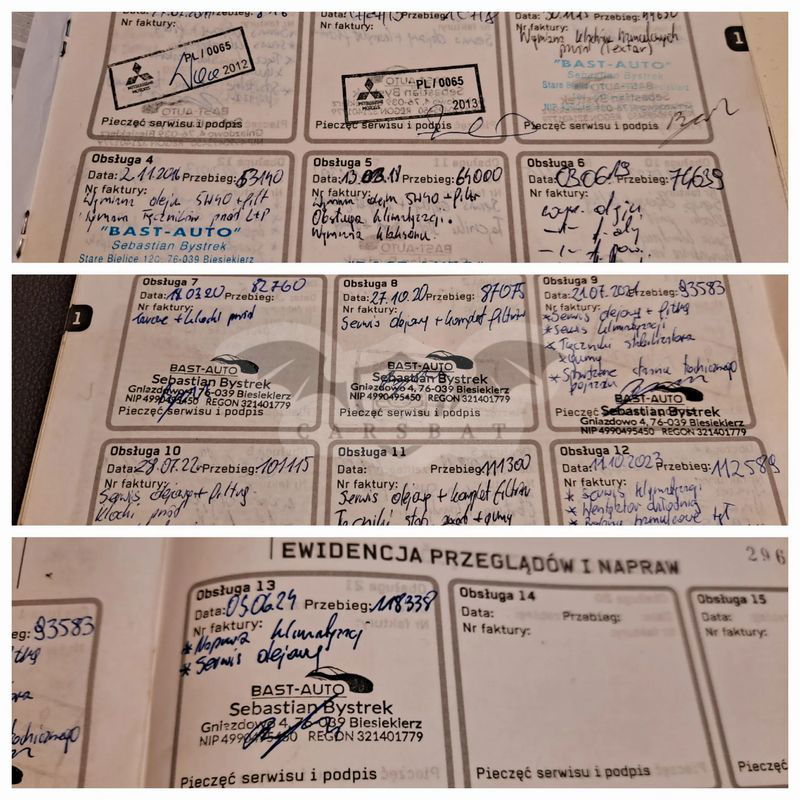 Nr faktury:
PL/0065
MITSUBISHI MOTORS
2012
Pieczęć serwisu i podpis
Przebieg:
Nr faktury:
PL/0065
MITSUBISHI MOTORS
2013
Pieczęć serwisu i podpis
Przebieg:
Nr faktury:
Wymiana klocków hamulcowych
przód (Textar)
"BAST-AUTO"
Sebastian Bystrek
Pieczęć serwisu i podpis
1
Obsługa 4
Data: 2.11.2016 Przebieg: 53140
Nr faktury:
Wymiana oleju 5W40 + filtr
Wymiana łączników przód L+P
"BAST-AUTO"
Sebastian Bystrek
Stare Bielice 120, 76-039 Biesiekierz
Obsługa 5
Data: 13.03.18 Przebieg: 64000
Nr faktury:
Wymiana oleju 5W40 + filtr
Obsługa klimatyzacji.
Wymiana klaksonu.
Obsługa 6
Data: 03.06.19 Przebieg: 76639
Nr faktury:
wym. oleju
1
Obsługa 7
Data: 18.03.20 Przebieg: 82760
Nr faktury:
tarcze + klocki przód
BAST-AUTO
Sebastian Bystrek
Gniazdowo 4, 76-039 Biesiekierz
NIP 4990495450 REGON 321401779
Pieczęć serwisu i podpis
Obsługa 8
Data: 27.10.20 Przebieg: 87075
Nr faktury:
Serwis olejowy + komplet filtrów
BAST-AUTO
Sebastian Bystrek
Gniazdowo 4, 76-039 Biesiekierz
NIP 4990495450 REGON 321401779
Pieczęć serwisu i podpis
Obsługa 9
Data: 21.07.2021 Przebieg: 93583
Nr faktury:
* Serwis olejowy + filtry
* Serwis klimatyzacji
* Łączniki stabilizatora
+ gumy
* Sprawdzenie stanu technicznego
pojazdu
BAST-AUTO
Sebastian Bystrek
Gniazdowo 4, 76-039 Biesiekierz
NIP 4990495450 REGON 321401779
CARSBAT
Obsługa 10
Data: 28.07.22 Przebieg: 101115
Nr faktury:
Serwis olejowy + filtry
klocki przód
Obsługa 11
Przebieg: 111300
Nr faktury:
Serwis olejowy + komplet filtrów
Łączniki stab. przód + gumy
Obsługa 12
Data: 11.10.2023 Przebieg: 112589
Nr faktury:
* Serwis klimatyzacji
* Wentylator chłodnicy
EWIDENCJA PRZEGLĄDÓW I NAPRAW
296
93583
Obsługa 13
Data: 03.06.24 Przebieg: 118338
Nr faktury:
* Naprawa klimatyzacji
* Serwis olejowy
BAST-AUTO
Sebastian Bystrek
Gniazdowo 4, 76-039 Biesiekierz
NIP 4990495450 REGON 321401779
Pieczęć serwisu i podpis
Obsługa 14
Data: Przebieg:
Nr faktury:
Pieczęć serwisu i podpis
Obsługa 15
Data:
Nr faktury:
Pieczęć